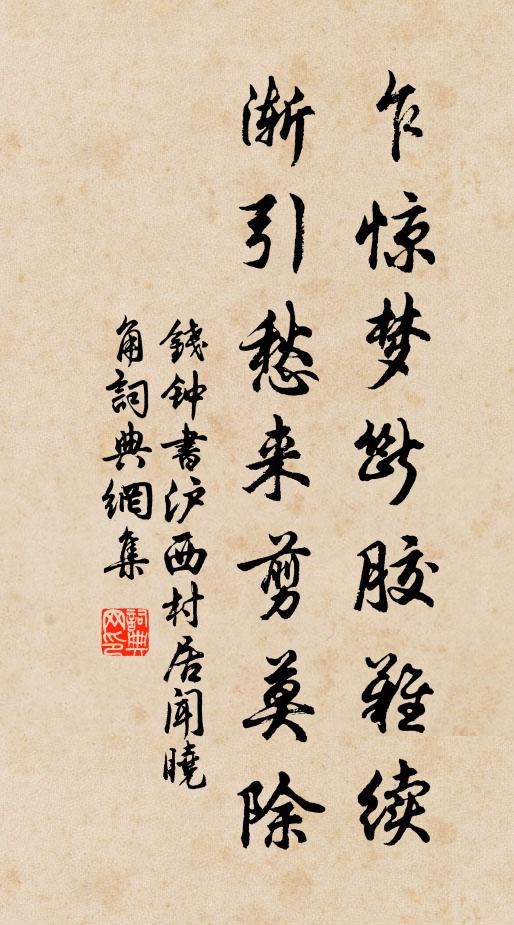 乍惊梦断胶难续
渐引愁来剪莫除
錢钟書沪西村居闻曉
角詞典網集
詞典网印